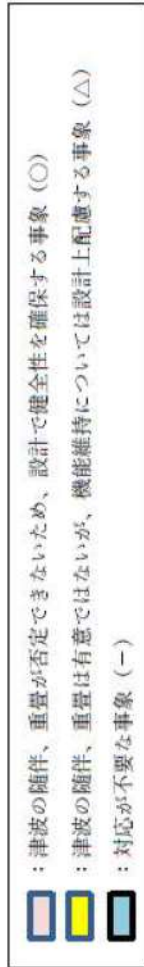 ：津波の随伴、重畳が否定できないため、設計で健全性を確保する事象（○）
：津波の随伴、重畳は有意ではないが、機能維持については設計上配慮する事象（△）
：対応が不要な事象（－）